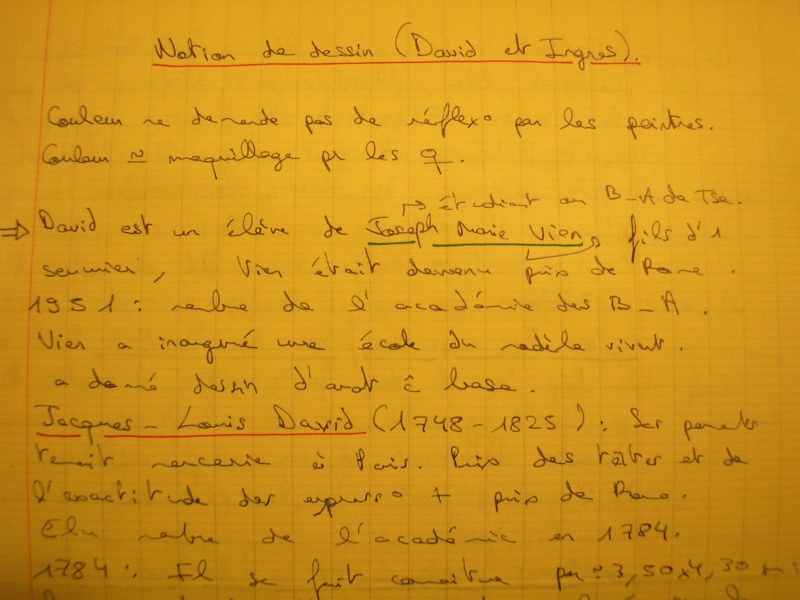 Notion de dessin (David et Ingres).
Couleur ne demande pas de réflex° par les peintres.
Couleur ≃ maquillage pr les ♀.
↳ étudiant au B-A de Tse.
⇒ David est un élève de Joseph Marie Vien, fils d'1
serrurier, Vien était devenu prix de Rome.
1951 : membre de l'académie des B-A.
Vien a inauguré une école du modèle vivant.
a donné dessin d'
Jacques-Louis David (1748-1825) : Ses parents
tenait mercerie à Paris. Prix des têtes et de
l'exactitude des express° + prix de Rome.
Elu membre de l'académie en 1784.
1784 : Il se fait connaitre par 3,50x4,30